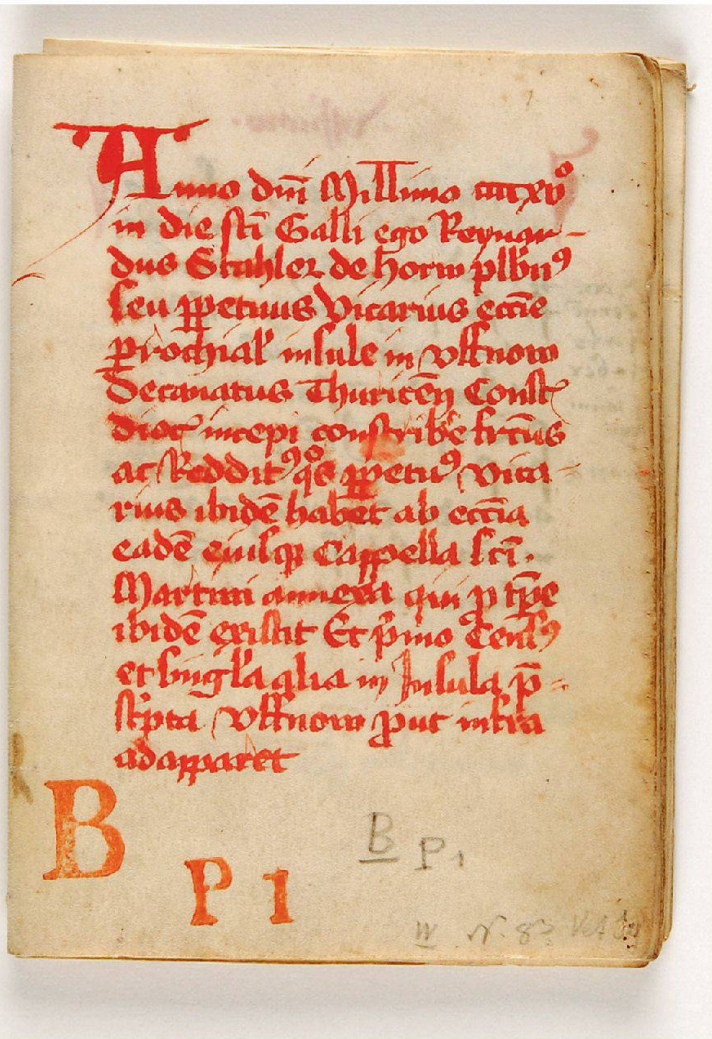 Anno dn̄i Mill̄imo ccccxvͦ
in die sc̄ti Galli ego Reynar-
dus Stahler de horw pl̄bn⁹
seu ꝑpetuus Vicarius eccīe
ꝑrochial̓ insule in vffnow
Decanatus Thuricēn Const̄
dioc̓ incepi conscribe᷑ fructus
ac Reddit⁹ qͦs ꝑpetu⁹ Vica-
rius ibidē habet ab ecc̄ia
eadē eiusqꝫ Cappella sc̄i.
Martini annexa qui ꝓ tp̄e
ibidē existit Et p̄mo Cens⁹
et singl̓a alia in Insula p̄-
sc̓pta vffnow ꝓut infra
adapparet
B
P 1
B P 1
IV N. 83